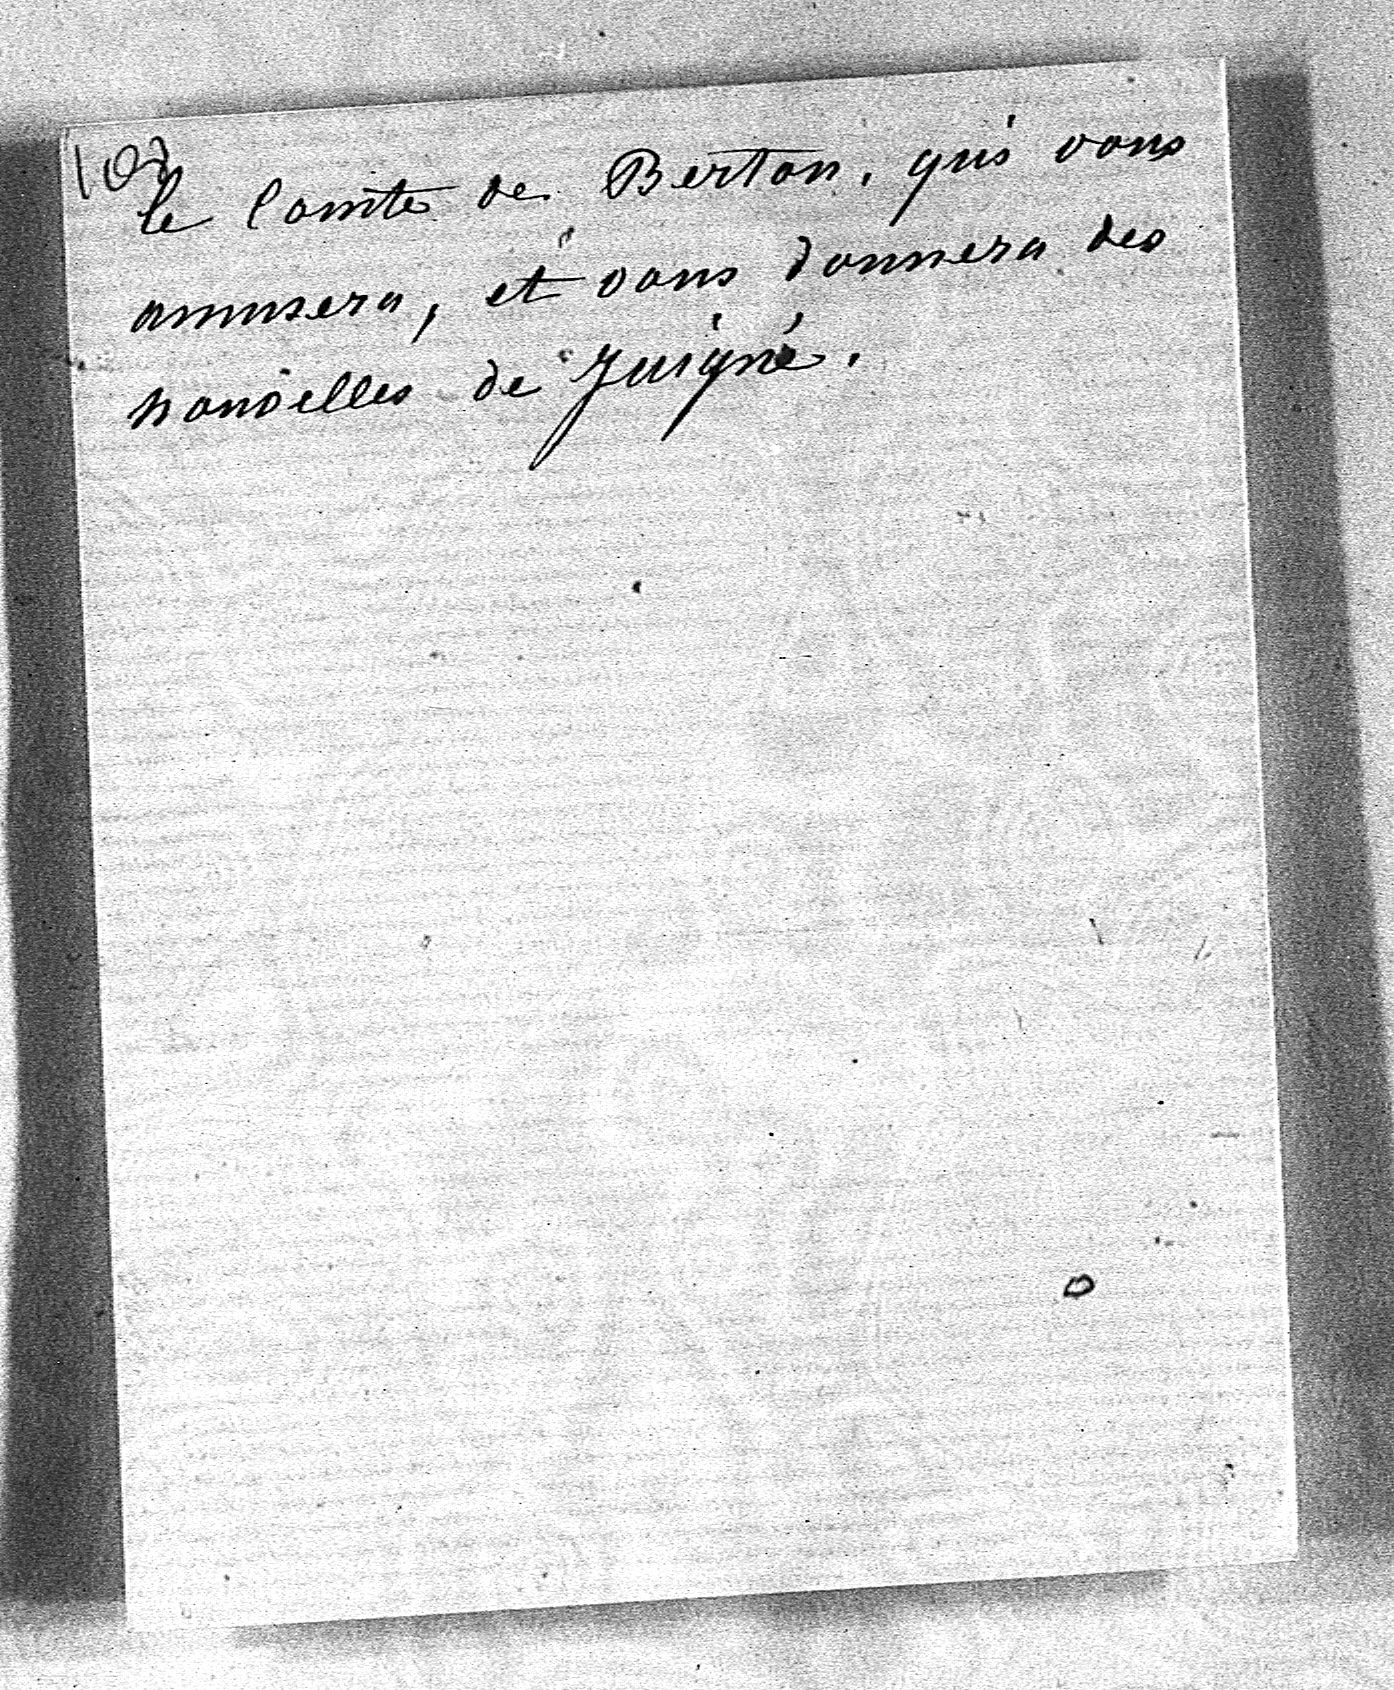 102
le Comte de Berton, qui vous
amusera, et vous donnera des
nouvelles de Juigné.